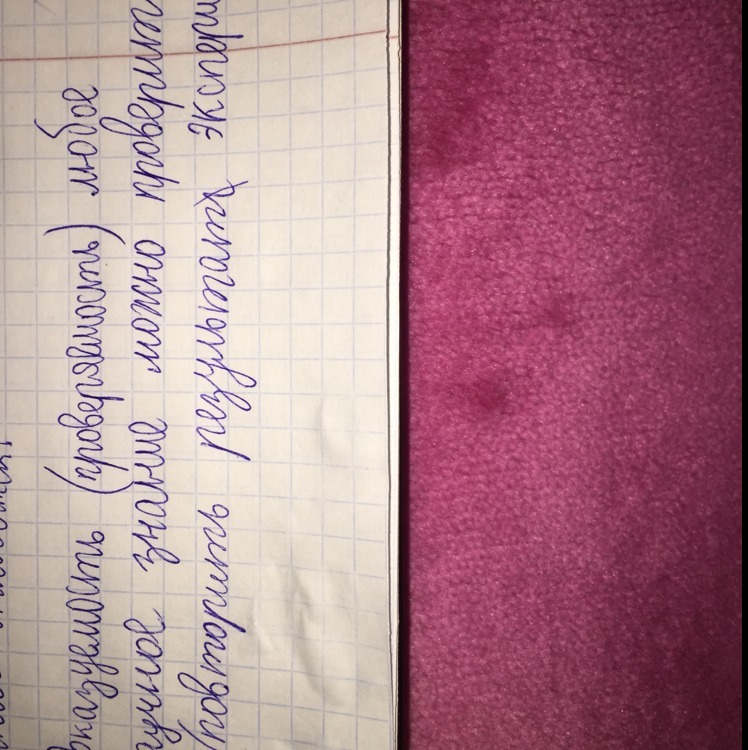 оказуемость (проверяемость) любое
аучное знание можно проверит
(повторить результаты экспери